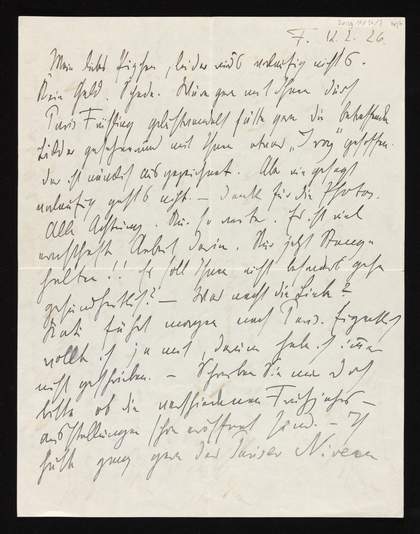 F. 12.2.26.
Mein lieber Figcher, leider wird vorläufig nichts.
Kein Geld. Schade. Wäre gern mit Ihnen durch
Paris Frühling geschlendert hätte gern die betreffenden
Bilder gesehen und mit Ihnen etwas gesoffen.
der ist nämlich ausgezeichnet. Also wie gesagt
vorläufig gehts nicht. — dank für die Photos.
Alle Achtung. Nur so weiter. Es ist viel
ernsthafte Arbeit darin. Nur jetzt Stange
halten!! Es soll Ihnen nicht besonders gehn
gesundheitlich? — Was macht die Liebe?
Kati fährt morgen nach Paris. Eigentlich
wollte ich ja mit, darum habe ich immer
nicht geschrieben. — Schreiben Sie mir doch
bitte ob die verschiedenen Frühjahrs-
ausstellungen schon eröffnet sind. — Ich
hätte ganz gern das Pariser Niveau